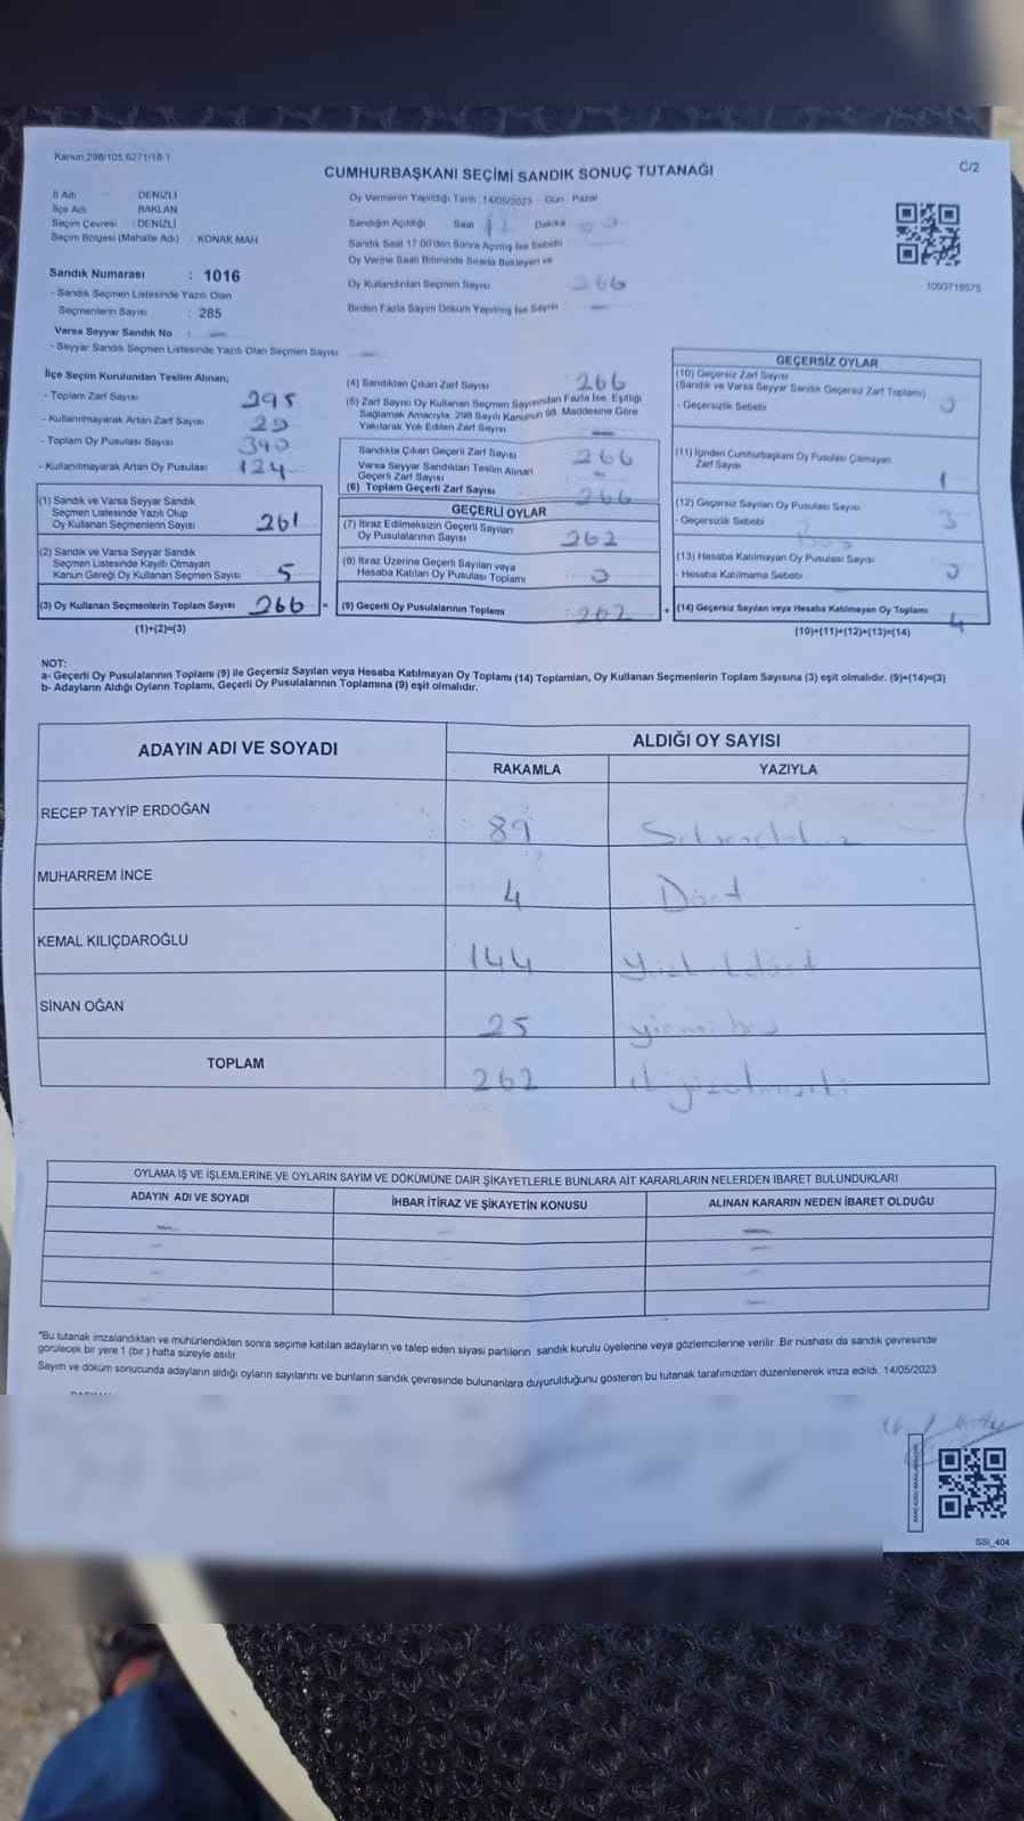 Kanun:298/105,6271/18.1
CUMHURBAŞKANI SEÇİMİ SANDIK SONUÇ TUTANAĞI
C/2
İl Adı : DENİZLİ
İlçe Adı : BAKLAN
Seçim Çevresi : DENİZLİ
Seçim Bölgesi (Mahalle Adı) : KONAK MAH
Sandık Numarası : 1016
- Sandık Seçmen Listesinde Yazılı Olan
Seçmenlerin Sayısı : 285
Varsa Seyyar Sandık No : —
- Seyyar Sandık Seçmen Listesinde Yazılı Olan Seçmen Sayısı —
Oy Vermenin Yapıldığı Tarih : 14/05/2023 Gün : Pazar
Sandığın Açıldığı Saat Dakika
Sandık Saat 17:00'den Sonra Açılmış İse Sebebi
Oy Verme Saati Bitiminde Sırada Bekleyen ve
Oy Kullandırılan Seçmen Sayısı 266
Birden Fazla Sayım Döküm Yapılmış İse Sayısı —
1093718575
İlçe Seçim Kurulundan Teslim Alınan;
- Toplam Zarf Sayısı 295
- Kullanılmayarak Artan Zarf Sayısı 29
- Toplam Oy Pusulası Sayısı 390
- Kullanılmayarak Artan Oy Pusulası 124
(1) Sandık ve Varsa Seyyar Sandık
Seçmen Listesinde Yazılı Olup
Oy Kullanan Seçmenlerin Sayısı 261
(2) Sandık ve Varsa Seyyar Sandık
Seçmen Listesinde Kayıtlı Olmayan
Kanun Gereği Oy Kullanan Seçmen Sayısı 5
(3) Oy Kullanan Seçmenlerin Toplam Sayısı 266 =
(1)+(2)=(3)
(4) Sandıktan Çıkan Zarf Sayısı 266
(5) Zarf Sayısı Oy Kullanan Seçmen Sayısından Fazla İse, Eşitliği
Sağlamak Amacıyla, 298 Sayılı Kanunun 98. Maddesine Göre
Yakılarak Yok Edilen Zarf Sayısı —
Sandıkta Çıkan Geçerli Zarf Sayısı 266
Varsa Seyyar Sandıktan Teslim Alınan
Geçerli Zarf Sayısı —
(6) Toplam Geçerli Zarf Sayısı 266
GEÇERLİ OYLAR
(7) İtiraz Edilmeksizin Geçerli Sayılan
Oy Pusulalarının Sayısı 262
(8) İtiraz Üzerine Geçerli Sayılan veya
Hesaba Katılan Oy Pusulası Toplamı 0
(9) Geçerli Oy Pusulalarının Toplamı : 262 +
GEÇERSİZ OYLAR
(10) Geçersiz Zarf Sayısı
(Sandık ve Varsa Seyyar Sandık Geçersiz Zarf Toplamı)
- Geçersizlik Sebebi
(11) İçinden Cumhurbaşkanı Oy Pusulası Çıkmayan
Zarf Sayısı 1
(12) Geçersiz Sayılan Oy Pusulası Sayısı 3
- Geçersizlik Sebebi
(13) Hesaba Katılmayan Oy Pusulası Sayısı
- Hesaba Katılmama Sebebi
(14) Geçersiz Sayılan veya Hesaba Katılmayan Oy Toplamı 4
(10)+(11)+(12)+(13)=(14)
NOT:
a- Geçerli Oy Pusulalarının Toplamı (9) ile Geçersiz Sayılan veya Hesaba Katılmayan Oy Toplamı (14) Toplamları, Oy Kullanan Seçmenlerin Toplam Sayısına (3) eşit olmalıdır. (9)+(14)=(3)
b- Adayların Aldığı Oyların Toplamı, Geçerli Oy Pusulalarının Toplamına (9) eşit olmalıdır.
ADAYIN ADI VE SOYADI
ALDIĞI OY SAYISI
RAKAMLA YAZIYLA
RECEP TAYYİP ERDOĞAN 89
MUHARREM İNCE 4 Dört
KEMAL KILIÇDAROĞLU 144
SİNAN OĞAN 25 yirmi beş
TOPLAM 262
OYLAMA İŞ VE İŞLEMLERİNE VE OYLARIN SAYIM VE DÖKÜMÜNE DAİR ŞİKAYETLERLE BUNLARA AİT KARARLARIN NELERDEN İBARET BULUNDUKLARI
ADAYIN ADI VE SOYADI İHBAR İTİRAZ VE ŞİKAYETİN KONUSU ALINAN KARARIN NEDEN İBARET OLDUĞU
"Bu tutanak imzalandıktan ve mühürlendikten sonra seçime katılan adayların ve talep eden siyasi partilerin sandık kurulu üyelerine veya gözlemcilerine verilir. Bir nüshası da sandık çevresinde
görülecek bir yere 1 (bir) hafta süreyle asılır.
Sayım ve döküm sonucunda adayların aldığı oyların sayılarını ve bunların sandık çevresinde bulunanlara duyurulduğunu gösteren bu tutanak tarafımızdan düzenlenerek imza edildi. 14/05/2023
SSI_404